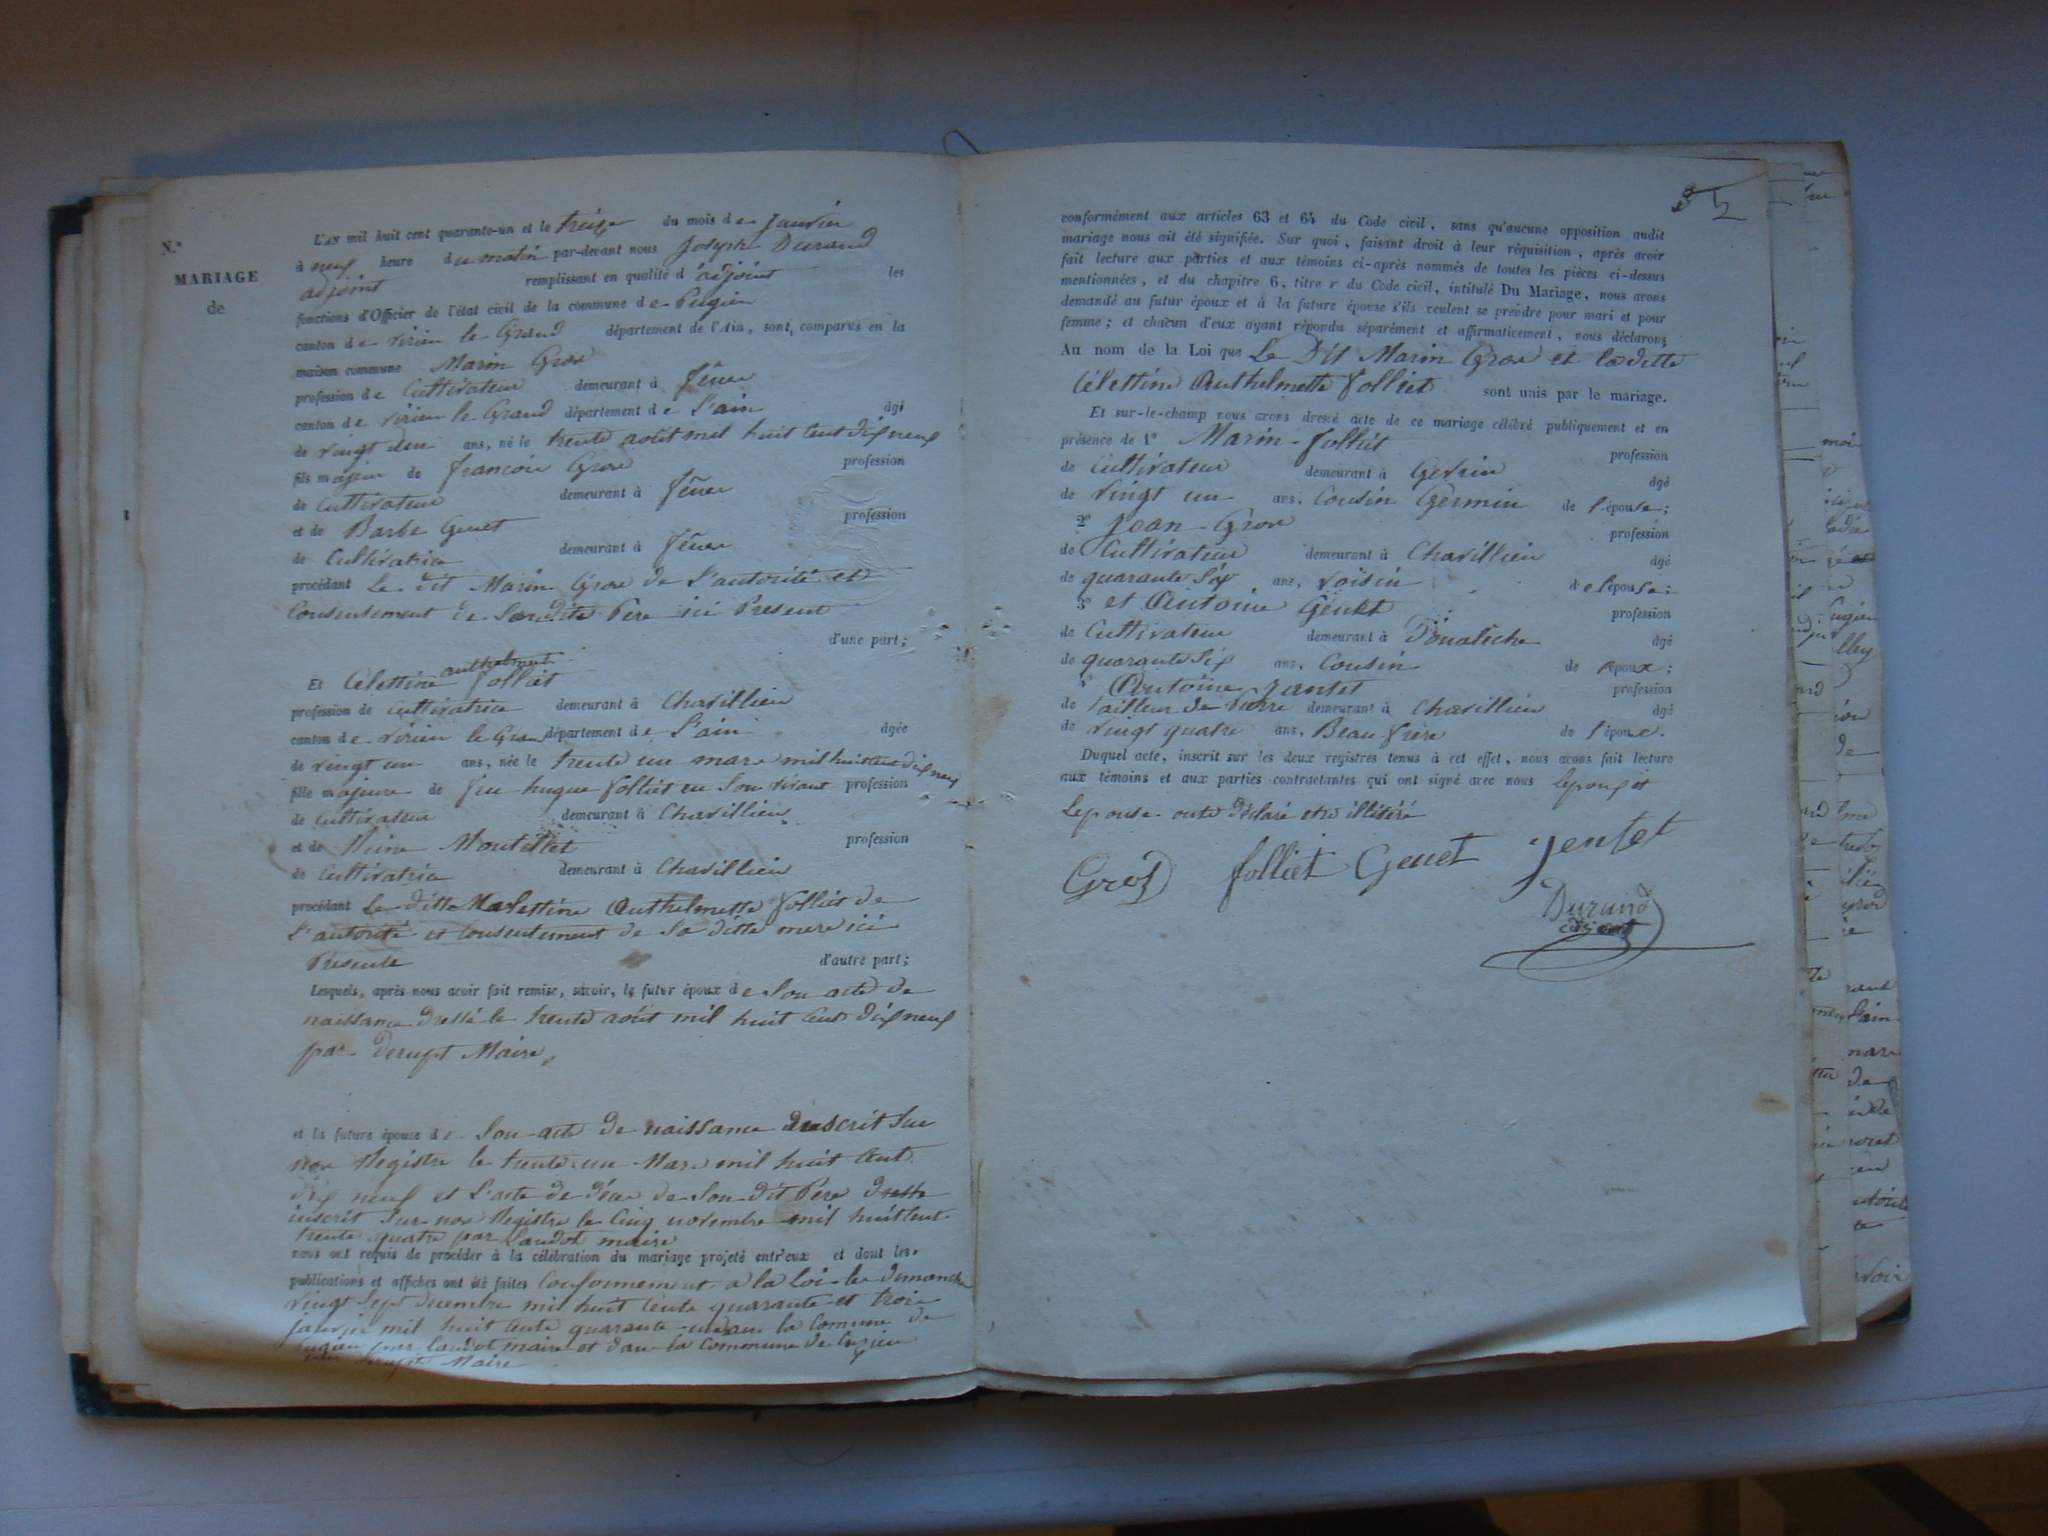 N.°
MARIAGE
de
L'AN mil huit cent quarante-un et le treize du mois de Janvier
à neuf heure du matin par-devant nous Joseph Durand
adjoint remplissant en qualité d'adjoint les
fonctions d'Officier de l'état civil de la commune de Pugieu
canton de virieu le Grand département de l'Ain, sont comparus en la
maison commune Marin Gros
profession de Cultivateur demeurant à
canton de virieu le Grand département de L'ain âgé
de vingt deu ans, né le trente août mil huit cent dix neuf
fils majeur de françois Gros profession
de Cultivateur demeurant à
et de Barbe Genet profession
de Cultivatrice demeurant à
procédant Le dit Marin Gros de L'autorité et
Consentement de Son dite Père ici Present
d'une part;
anthelmette
Et Célestine folliet
profession de Cultivatrice demeurant à Chavillieu
canton de virieu le Gran département de L'ain âgée
de vingt un ans, née le trente un mars mil huit cent dix neuf
fille majeure de feu hugue folliet en Son vivant profession
de Cultivateur demeurant à Chavillieu
et de Reine Montillet profession
de Cultivatrice demeurant à Chavillieu
procédant La ditte Célestine Anthelmette folliet de
L'autorité et Consentement de Sa ditte mere ici
Présente d'autre part;
Lesquels, après nous avoir fait remise, savoir, le futur époux de Son acte de
naissance dressé le trente août mil huit Cent dix neuf
par Derupt Maire,
et la future épouse de Son acte de naissance inscrit Sur
nos Registre le trente un Mars mil huit Cent
dix neuf et L'acte de décès de Son dit Père
inscrit Sur nos Registre le Cinq novembre mil huit Cent
trente quatre par Landot maire
nous ont requis de procéder à la célébration du mariage projeté entr'eux et dont les
publications et affiches ont été faites Conformement a la Loi les dimanche
vingt Sept decembre mil huit Cents quarante et trois
janvier mil huit Cents quarante un dans la Comune de
Pugieu par Landot maire et dans la Commune de Cuzieu
par Derupt Maire
5
conformément aux articles 63 et 64 du Code civil, sans qu'aucune opposition audit
mariage nous ait été signifiée. Sur quoi, faisant droit à leur réquisition, après avoir
fait lecture aux parties et aux témoins ci-après nommés de toutes les pièces ci-dessus
mentionnées, et du chapitre 6, titre v du Code civil, intitulé Du Mariage, nous avons
demandé au futur époux et à la future épouse s'ils veulent se prendre pour mari et pour
femme; et chacun d'eux ayant répondu séparément et affirmativement, nous déclarons
Au nom de la Loi que Le Dit Marin Gros et la ditte
Célestine Anthelmette folliet sont unis par le mariage.
Et sur-le-champ nous avons dressé acte de ce mariage célébré publiquement et en
présence de 1° Marin folliet profession
de Cultivateur demeurant à Gevrin âgé
de vingt un ans, Cousin Germin de l'épouse;
2° Jean Gros profession
de Cultivateur demeurant à Chavillieu âgé
de quarante Six ans, voisin de l'épouse;
3° et Antoine Genet profession
de Cultivateur demeurant à âgé
de quarante Six ans, Cousin de époux;
4° Antoine profession
de tailleur de Pierre demeurant à Chavillieu âgé
de vingt quatre ans, Beau frère de l'épouse.
Duquel acte, inscrit sur les deux registres tenus à cet effet, nous avons fait lecture
aux témoins et aux parties contractantes qui ont signé avec nous Lepoux et
Lepouse onts déclaré etre illitéré
Gros folliet Genet Jentet
Durand
adjoint